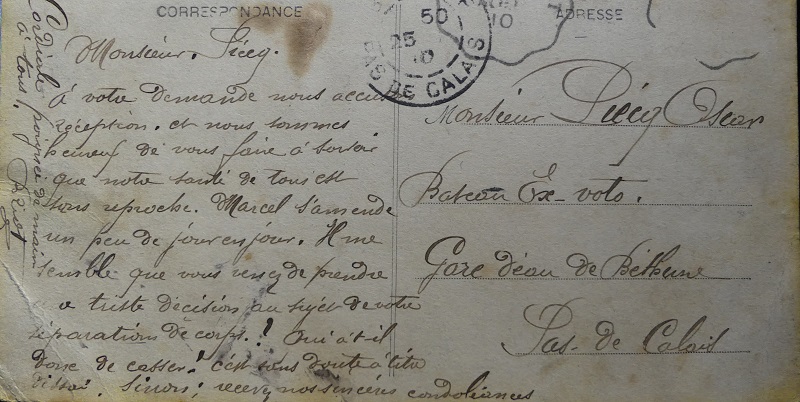 CORRESPONDANCE
Monsieur
À votre demande nous
réception. et nous sommes
de vous faire à savoir
que notre santé de tous est
sans reproche. Marcel s'amende
un peu de jour en jour. Il me
semble que vous venez de prendre
triste décision au sujet de votre
séparations de corps.! Qui a-t-il
donc de casser! c'est sans doute à titre
Sinon, recevez nos sincères condoléances
Cordiale poignée de main
à tous.
50
25
10
PAS DE CALAIS
10
ADRESSE
Monsieur Oscar
Bateau Ex-voto.
Gare d'eau de Béthune
Pas-de Calais